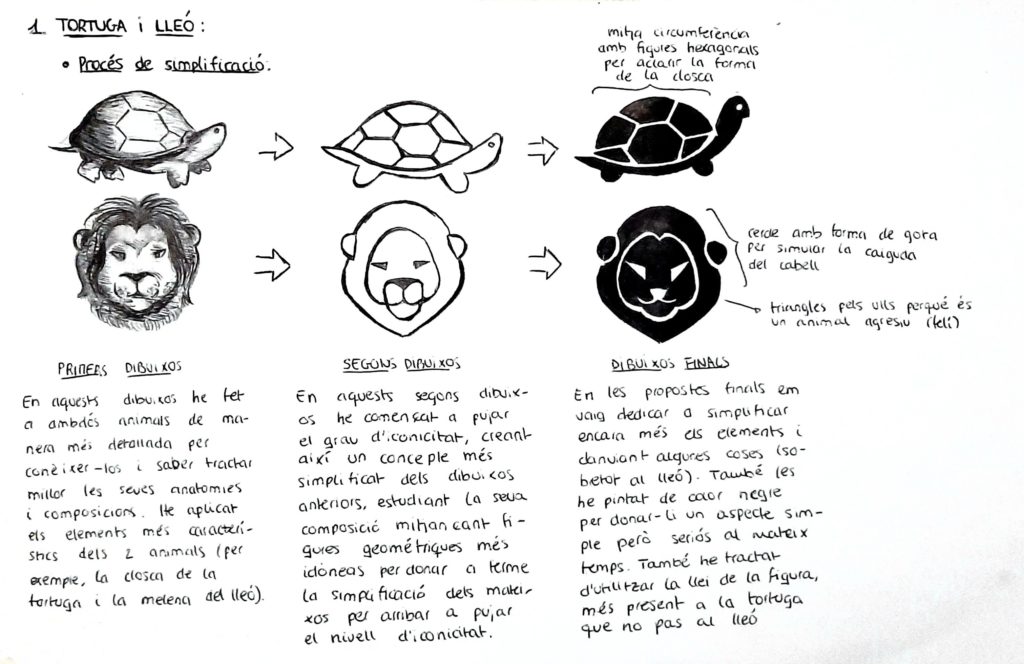 1 TORTUGA i LLEÓ:
• Procés de simplificació:
mitja circumferència
amb figures hexagonals
per aclarir la forma
de la closca
cercle amb forma de gota
per simular la caiguda
del cabell
triangles pels ulls perquè és
un animal agresiu (felí)
PRIMERS DIBUIXOS
En aquests dibuixos he fet
a ambdós animals de ma-
nera més detallada per
conèixer-los i saber tractar
millor les seves anatomies
i composicions. He aplicat
els elements més caracterí-
stics dels 2 animals (per
exemple, la closca de la
tortuga i la melena del lleó).
SEGONS DIBUIXOS
En aquests segons dibuix-
os he començat a pujar
el grau d'iconicitat, creant
així un concepte més
simplificat dels dibuixos
anteriors, estudiant la seva
composició mitjançant fi-
gures geomètriques més
idònees per donar a terme
la simplificació dels matei-
xos per arribar a pujar
el nivell d'iconicitat.
DIBUIXOS FINALS
En les propostes finals em
vaig dedicar a simplificar
encara més els elements i
canviant algunes coses (so-
bretot al lleó). També les
he pintat de color negre
per donar-li un aspecte sim-
ple però seriós al mateix
temps. També he tractat
d'utilitzar la llei de la figura,
més present a la tortuga
que no pas al lleó